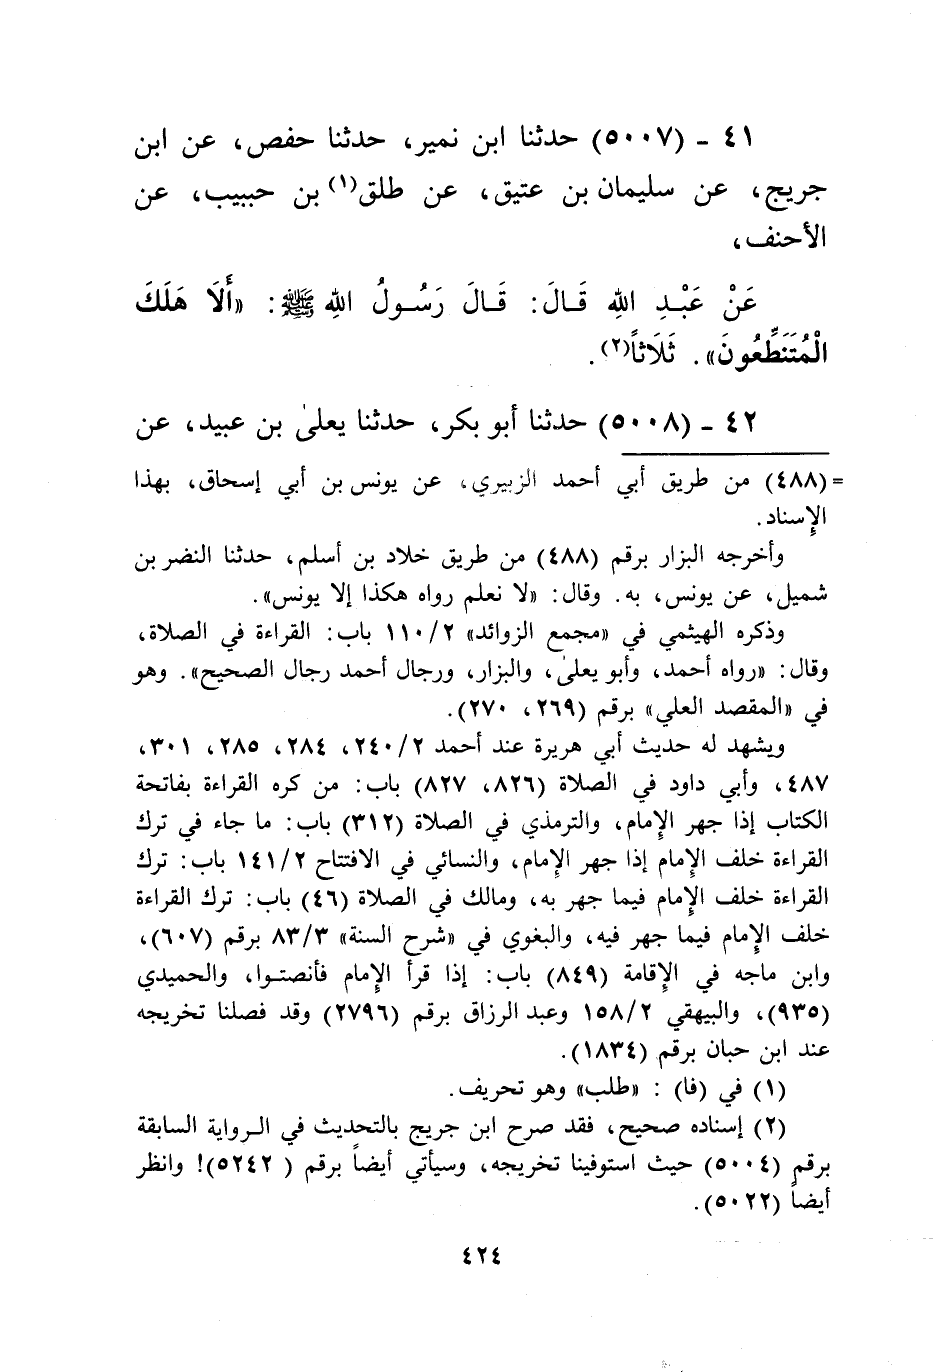 ٤١ - (٥٠٠٧) حدثنا ابن نمير، حدثنا حفص، عن ابن
جريج، عن سليمان بن عتيق، عن طلق(١) بن حبيب، عن
الأحنف،
عَنْ عَبْـدِ اللهِ قَـالَ: قَـالَ رَسُـولُ اللهِ ﷺ: «أَلَا هَلَكَ
الْمُتَنَطِّعُونَ». ثَلَاثاً(٢).
٤٢ - (٥٠٠٨) حدثنا أبو بكر، حدثنا يعلىٰ بن عبيد، عن
= (٤٨٨) من طريق أبي أحمد الزبيري، عن يونس بن أبي إسحاق، بهذا
الإسناد.
وأخرجه البزار برقم (٤٨٨) من طريق خلاد بن أسلم، حدثنا النضر بن
شميل، عن يونس، به. وقال: «لا نعلم رواه هكذا إلا يونس».
وذكره الهيثمي في «مجمع الزوائد» ١١٠/٢ باب: القراءة في الصلاة،
وقال: «رواه أحمد، وأبو يعلىٰ، والبزار، ورجال أحمد رجال الصحيح». وهو
في «المقصد العلي» برقم (٢٦٩، ٢٧٠).
ويشهد له حديث أبي هريرة عند أحمد ٢٤٠/٢، ٢٨٤، ٢٨٥، ٣٠١،
٤٨٧، وأبي داود في الصلاة (٨٢٦، ٨٢٧) باب: من كره القراءة بفاتحة
الكتاب إذا جهر الإمام، والترمذي في الصلاة (٣١٢) باب: ما جاء في ترك
القراءة خلف الإمام إذا جهر الإمام، والنسائي في الافتتاح ١٤١/٢ باب: ترك
القراءة خلف الإمام فيما جهر به، ومالك في الصلاة (٤٦) باب: ترك القراءة
خلف الإمام فيما جهر فيه، والبغوي في «شرح السنة» ٨٣/٣ برقم (٦٠٧)،
وابن ماجه في الإقامة (٨٤٩) باب: إذا قرأ الإمام فأنصتـوا، والحميدي
(٩٣٥)، والبيهقي ١٥٨/٢ وعبد الرزاق برقم (٢٧٩٦) وقد فصلنا تخريجه
عند ابن حبان برقم (١٨٣٤).
(١) في (فا) : «طلب» وهو تحريف.
(٢) إسناده صحيح، فقد صرح ابن جريج بالتحديث في الـرواية السابقة
برقم (٥٠٠٤) حيث استوفينا تخريجه، وسيأتي أيضاً برقم ( ٥٢٤٢)! وانظر
أيضاً (٥٠٢٢).
٤٢٤